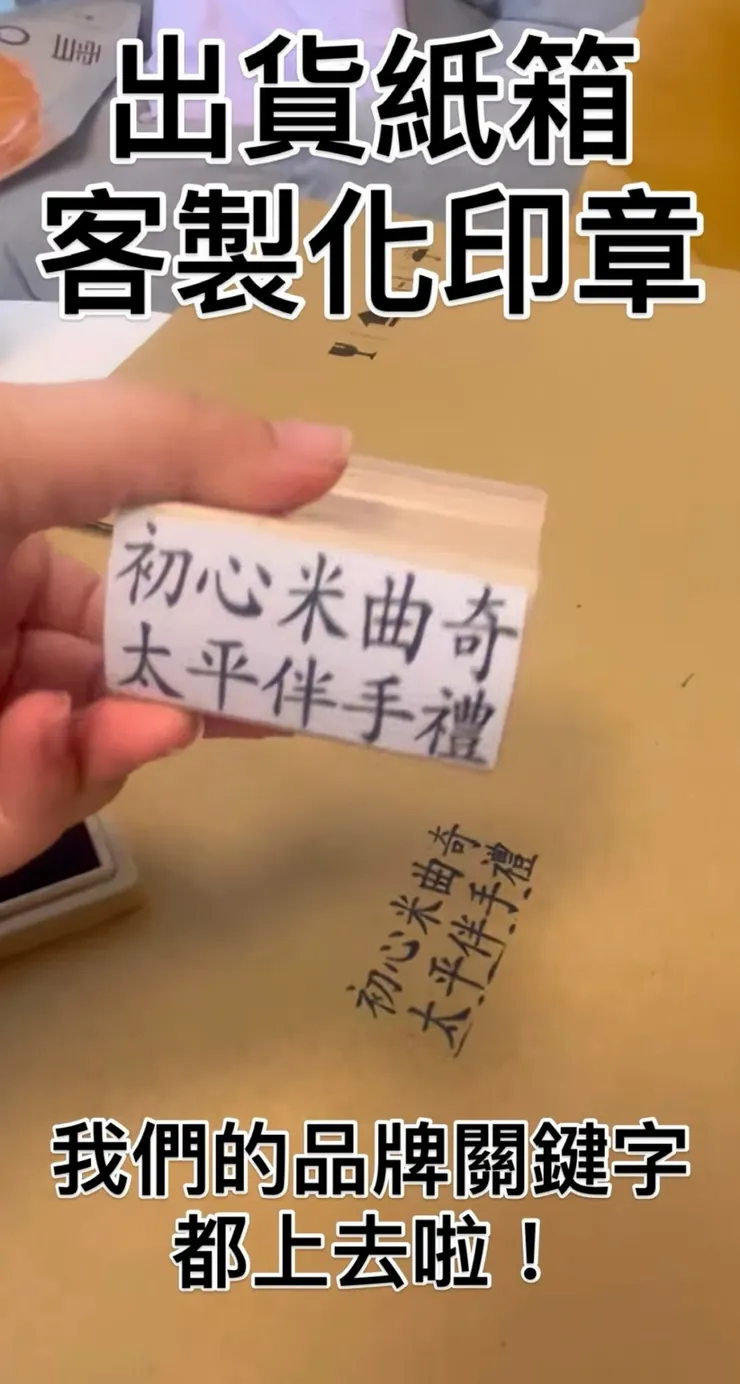 出貨紙箱
客製化印章
初心米曲奇
太平伴手禮
初心米曲奇
太平伴手禮
我們的品牌關鍵字
都上去啦！